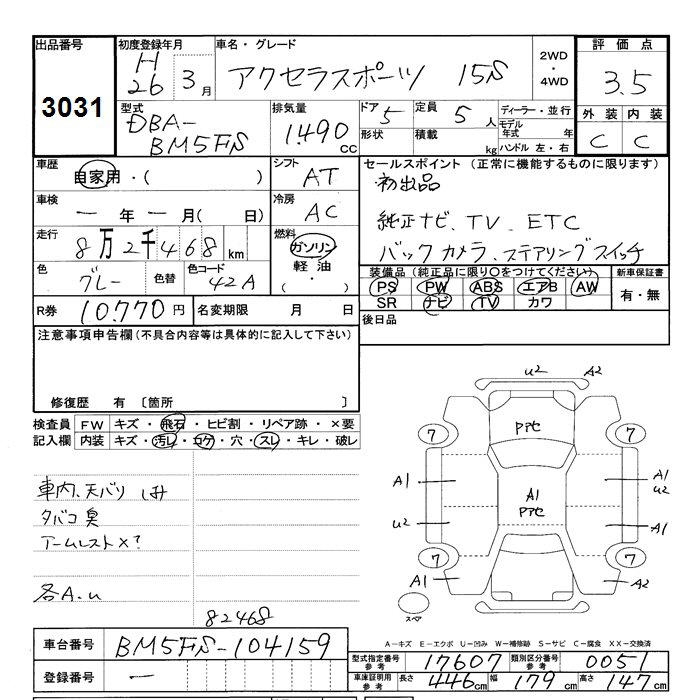 出品番号 初度登録年月 車名・グレード 2WD・4WD 評価点
3031 H26 3月 アクセラスポーツ 15S 3.5
型式 排気量 ドア 5 定員 5人 ディーラー・並行 外装 内装
DBA-BM5FS 1.490CC 形状 積載 kg モデル年式 年 C C
ハンドル 左・右
車歴 自家用・( ) シフト AT セールスポイント (正常に機能するものに限ります)
初出品
車検 一年一月( 日) 冷房 AC 純正ナビ、TV、ETC
走行 8万2千468km 燃料 ガソリン 軽油 (・) バックカメラ、ステアリングスイッチ
色 グレー 色替 色コード 42A 装備品 (純正品に限り○をつけてください) 新車保証書
PS PW ABS エアB AW 有・無
SR ナビ TV カワ
R券 10.770円 名変期限 月 日 後日品
注意事項申告欄(不具合内容等は具体的に記入して下さい)
修復歴 有 〔箇所 〕
検査員 FW キズ・飛石・ヒビ割・リペア跡・×要
記入欄 内装 キズ・汚レ・コゲ・穴・スレ・キレ・破レ
車内、天バリ しみ
タバコ臭
アームレスト×?
各A.u
82468
U2 A2
7 PPセ 7
A1 A1 A1 U2
U2 PPセ A1
7 7
A1 A2
スペア
A−キズ E−エクボ U−凹み W−補修跡 S−サビ C−腐食 XX−交換済
車台番号 BM5FS-104159 型式指定番号 参考 17607 類別区分番号 参考 0051
登録番号 一 車庫証明用 参考 長さ 446cm 幅 179cm 高さ 147cm